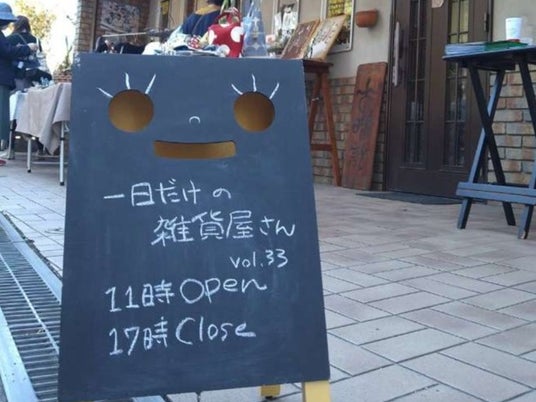 一日だけの
雑貨屋さん
vol.33
11時Open
17時Close